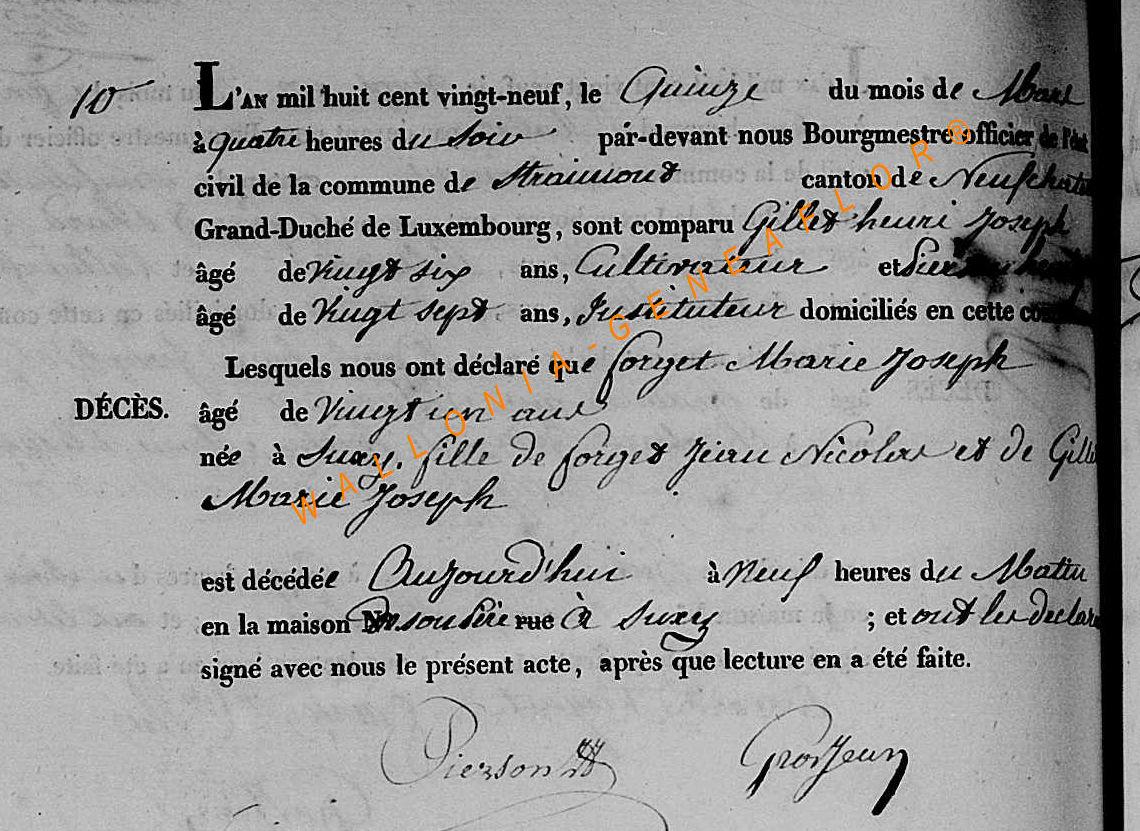 10
L'AN mil huit cent vingt-neuf, le Quinze du mois de Mars
à quatre heures du soir par-devant nous Bourgmestre officier de l'état
civil de la commune de Straimont canton de Neufchateau
Grand-Duché de Luxembourg, sont comparu Gillet henri Joseph
âgé de Vingt six ans, Cultivateur et
âgé de Vingt sept ans, Instituteur domiciliés en cette
Lesquels nous ont déclaré que forget Marie Joseph
DÉCÈS. âgé de Vingt un ans
née à Suxy, fille de forget Jean Nicolas et de
Marie Joseph
est décédée Aujourd'hui à Neuf heures du Matin
en la maison De son Père rue à Suxy ; et ont les declarants
signé avec nous le présent acte, après que lecture en a été faite.
Pierson GrosJean
WALLONIA-GENEAFLOR®